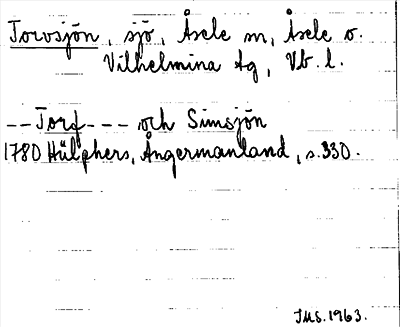 Torvsjön, sjö, Åsele sn, Åsele o.
Vilhelmina tg, Vb. l.
--Torf--- och Simsjön
1780 Hülphers, Ångermanland, s.330.
JMS.1963.